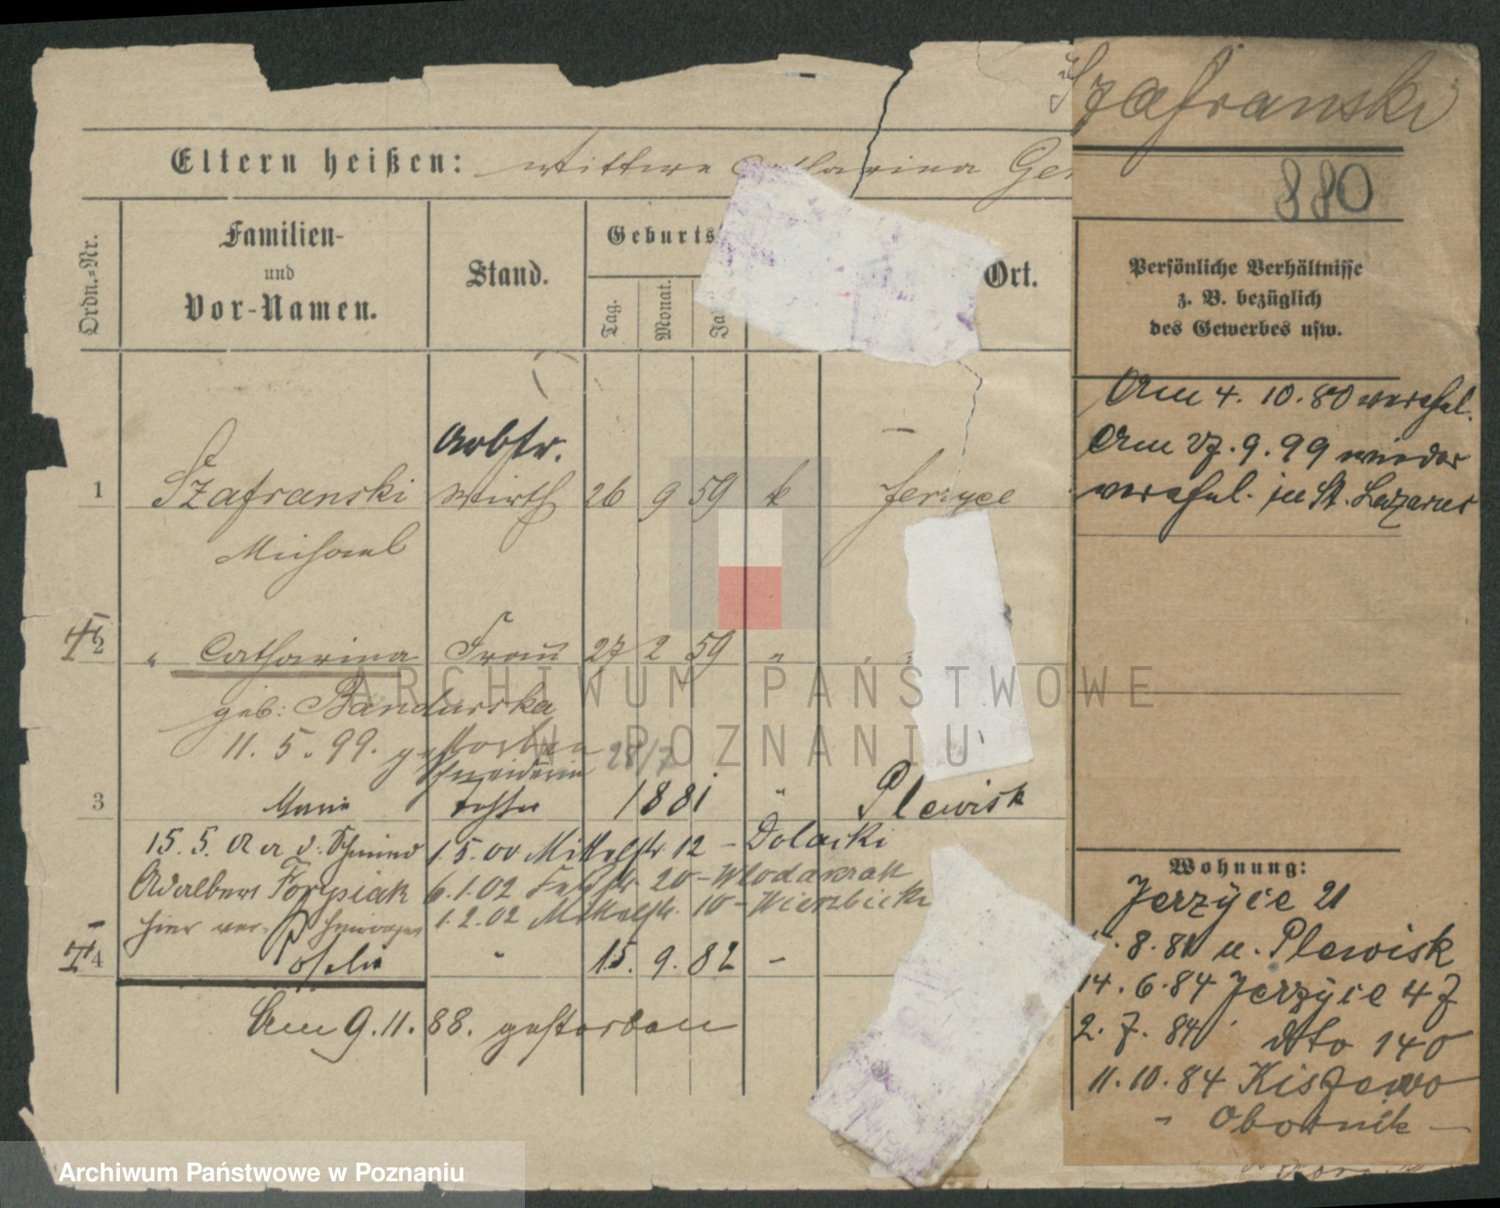 Szafranski
Eltern heißen: Wittwe Catharina
880
Ordn.-Nr.
Familien-
und
Vor-Namen.
Stand.
Geburts
Tag.
Monat.
Ort.
Persönliche Verhältnisse
z. B. bezüglich
des Gewerbes usw.
Am 4. 10. 80 verehel.
Am 27. 9. 99 wieder
verehel. in St. Lazarus
Arbtr.
1 Szafranski Wirth 26 9 59 k Jerzyce
Michael
2 " Catharina Frau 27 2 59 "
geb: Bandurska
11. 5. 99. gestorben 28/7
Schneiderin
3 Marie Tochter 1881 " Plewisk
15. 5. 1. 5. 00 Mittelstr 12 - Dolacki
Adalbert 6. 1. 02 Feldstr 20 -
hier 1. 2. 02 Mittelstr. 10 - Wierzbicki
4 Josefa " 15. 9. 82 -
Am 9. 11. 88. gestorben
Wohnung:
Jerzyce 21
8. 81 u. Plewisk
14. 6. 84 Jerzyce 47
2. 7. 84 dto 140
11. 10. 84 Kiszewo
- Obornik -
ARCHIWUM PAŃSTWOWE
W POZNANIU
Archiwum Państwowe w Poznaniu